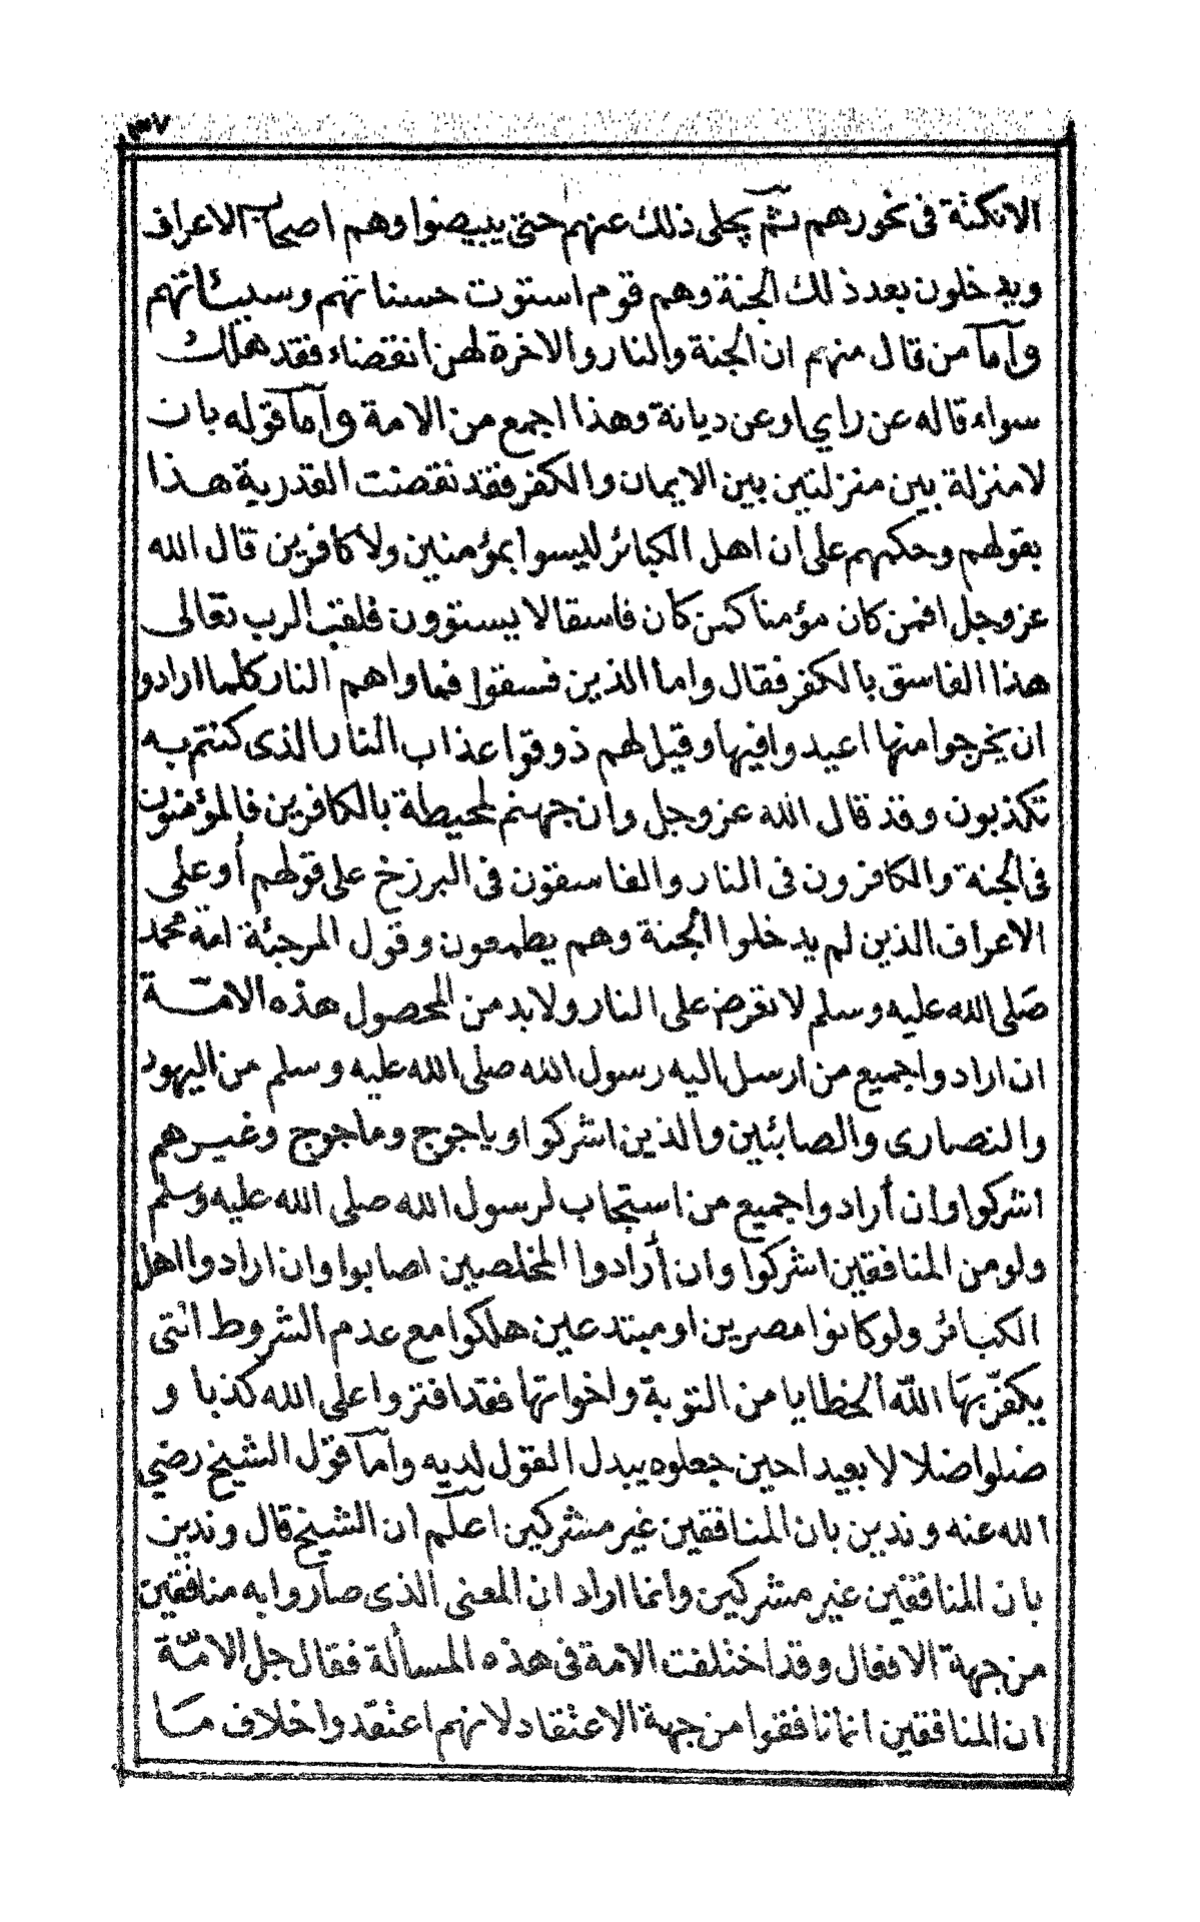 ٣٧
الانكنة فى نحورهم ثم يجلى ذلك عنهم حتى يبيضوا وهم اصحاب الاعراف
ويدخلون بعد ذلك الجنة وهم قوم استوت حسناتهم وسيئاتهم
وأما من قال منهم ان الجنة والنار والاخرة لهن انقضاء فقد هلك
سواء قاله عن راي او عن ديانة وهذا اجمع من الامة وأما قوله بان
لا منزلة بين منزلتين بين الايمان والكفر فقد نقضت القدرية هذا
بقولهم وحكمهم على ان اهل الكبائر ليسوا بمؤمنين ولا كافرين قال الله
عز وجل افمن كان مؤمنا كمن كان فاسقا لا يستوون فلقب الرب تعالى
هذا الفاسق بالكفر فقال واما الذين فسقوا فماواهم النار كلما ارادو
ان يخرجوا منها اعيدوا فيها وقيل لهم ذوقوا عذاب النار الذى كنتم به
تكذبون وقد قال الله عز وجل وان جهنم لمحيطة بالكافرين فالمؤمنون
فى الجنة والكافرون فى النار والفاسقون فى البرزخ على قولهم أو على
الاعراف الذين لم يدخلوا الجنة وهم يطمعون وقول المرجئة امة محمد
صلى الله عليه وسلم لا تعرض على النار ولا بد من المحصول هذه الامة
ان اراد واجميع من ارسل اليه رسول الله صلى الله عليه وسلم من اليهود
والنصارى والصابئين والذين اشركوا وياجوج وماجوج وغيرهم
اشركوا وان أراد واجميع من استجاب لرسول الله صلى الله عليه وسلم
ولو من المنافقين اشركوا وان أرادوا المخلصين اصابوا وان ارادوا اهل
الكبائر ولو كانوا مصرين او مبتدعين هلكوا مع عدم الشروط التى
يكفر بها الله الخطايا من التوبة واخواتها فقد افتروا على الله كذبا و
ضلوا ضلالا بعيدا حين جعلوه يبدل القول لديه وأما قول الشيخ رضي
الله عنه وندين بان المنافقين غير مشركين اعلم ان الشيخ قال وندين
بان المنافقين غير مشركين وانما اراد ان المعنى الذى صاروا به منافقين
من جهة الافعال وقد اختلفت الامة فى هذه المسألة فقال جل الامة
ان المنافقين انما نافقوا من جهة الاعتقاد لانهم اعتقدوا خلاف ما